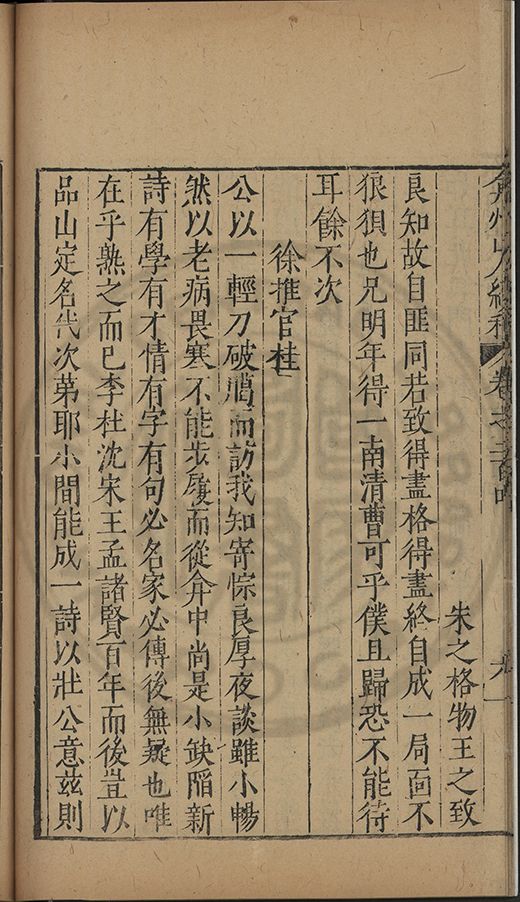 弇州山人續稿 卷之二百
朱之格物王之致
良知故自匪同若致得盡格得盡終自成一局面不
狼狽也兄明年得一南清曹可乎僕且歸恐不能待
耳餘不次
徐推官桂
公以一輕刀破臈而訪我知寄悰良厚夜談雖小暢
然以老病畏寒不能步屧而從弇中尚是小缺陷新
詩有學有才情有字有句必名家必傳後無疑也唯
在乎熟之而已李杜沈宋王孟諸賢百年而後豈以
品山定名代次第耶小間能成一詩以壯公意茲則